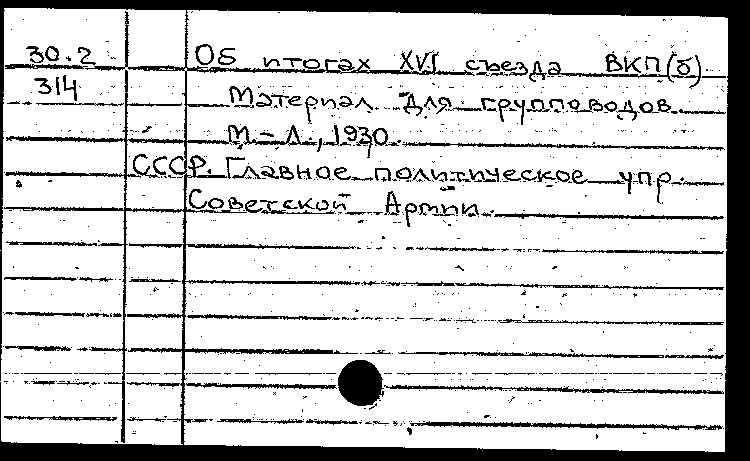 30.2 Об итогах XVI съезда ВКП(б)
314 Материал для групповодов.
М.-Л., 1930.
СССР. Главное политическое упр.
Советской Армии.